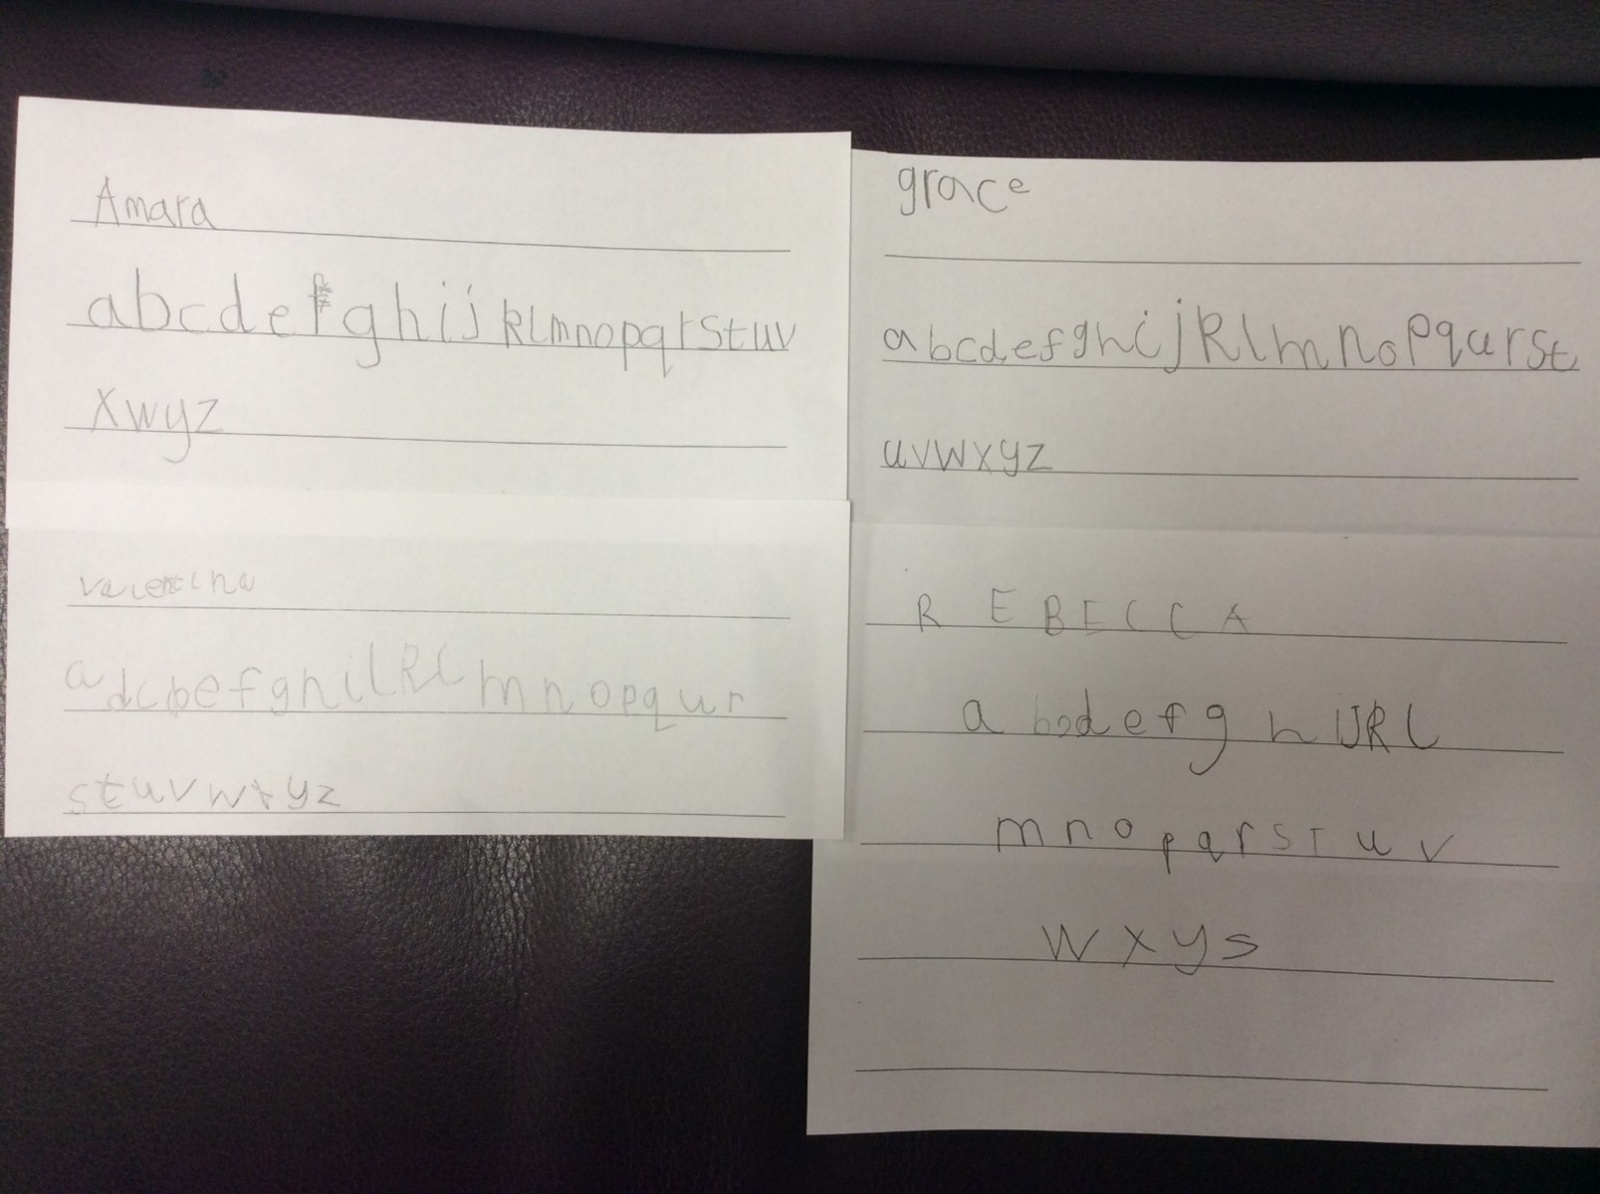 Amara
abcdefghijklmnopqrstuv
xwyz
grace
abcdefghijRlmnopqurst
uvwxyz
valentina
adcbefghilRlmnopqur
stuvwxyz
R E B E C C A
a bodefg h IJRL
m n o p q r s T u v
w x y s